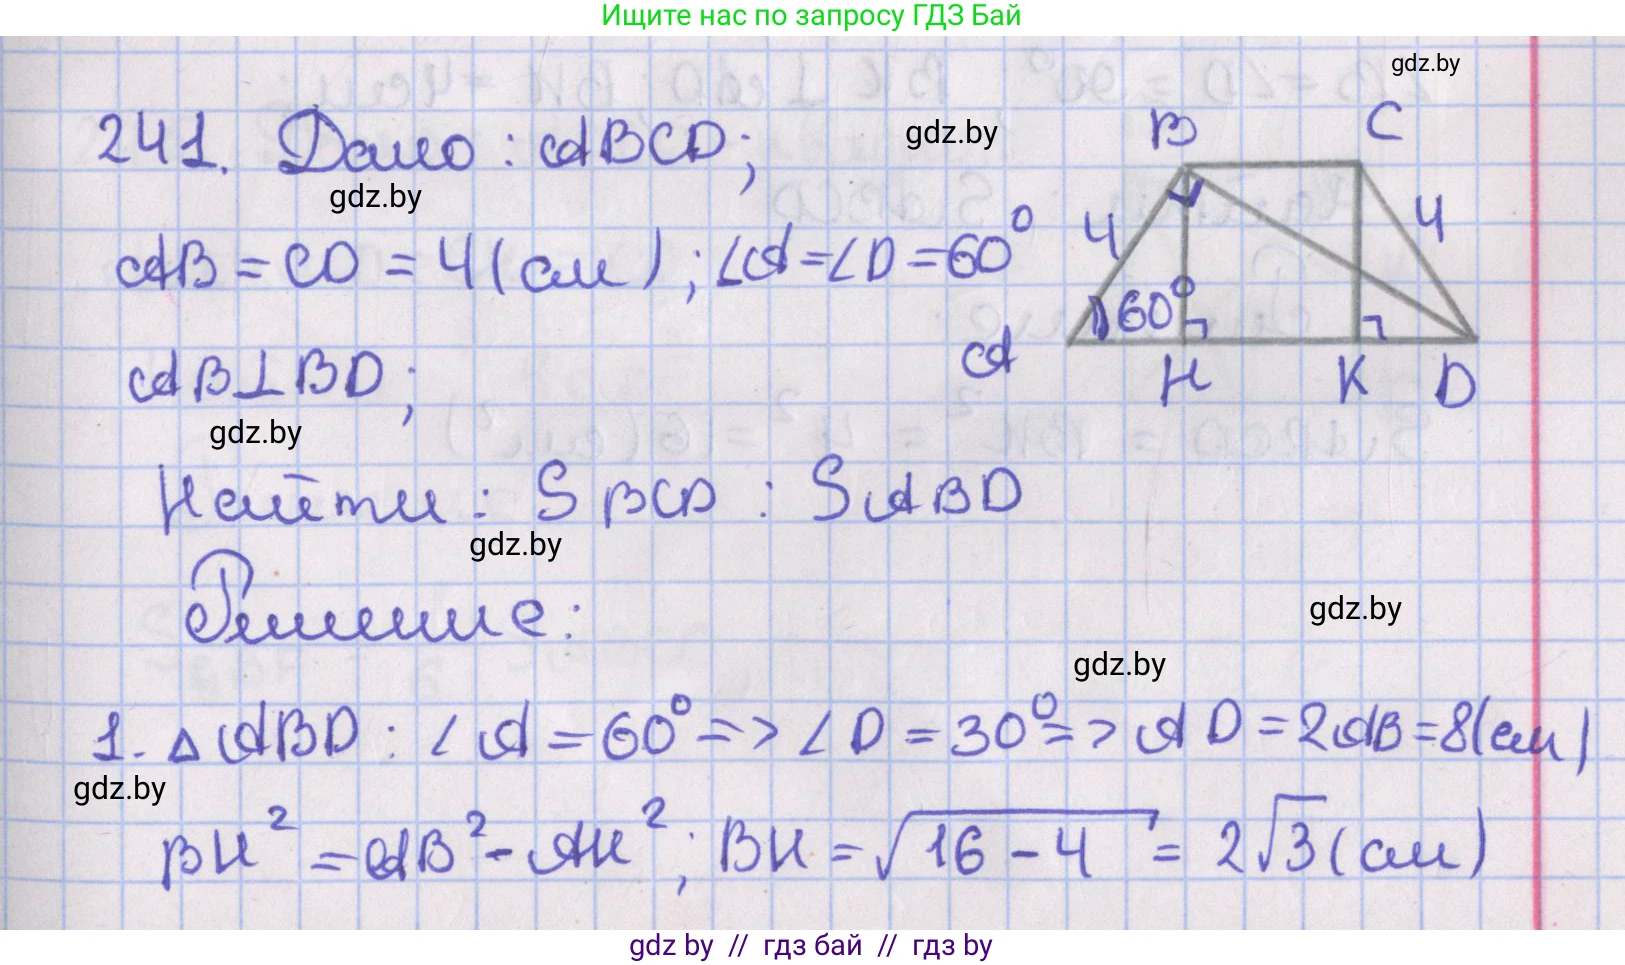 Ищите нас по запросу ГДЗ Бай
gdz.by
241. Дано: ABCD;
gdz.by
gdz.by
AB = CD = 4 (см); ∠A = ∠D = 60°
AB ⊥ BD;
gdz.by
B C
4 4
60°
A H K D
Найти: S BCD : S ABD
gdz.by
Решение:
gdz.by
gdz.by
1. △ABD: ∠A = 60° => ∠D = 30° => AD = 2AB = 8(см)
gdz.by
BH² = AB² - AH²; BH = √16 - 4 = 2√3 (см)
gdz by // гдз бай // гдз by